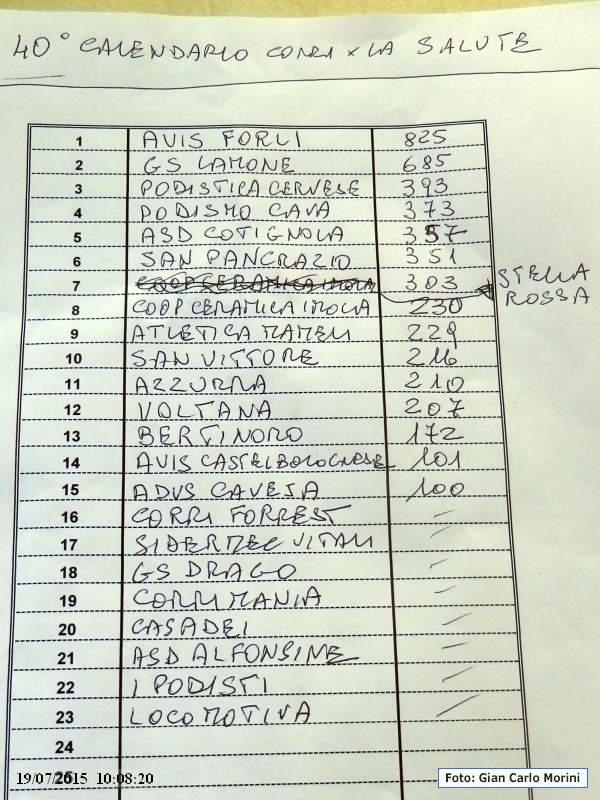 40° CALENDARIO CORRI x LA SALUTE
1 AVIS FORLI 825
2 GS LAMONE 685
3 PODISTICA CERVESE 393
4 PODISMO CAVA 373
5 ASD COTIGNOLA 357
6 SAN PANCRAZIO 351
7 COOP CERAMICA IMOLA 303 STELLA ROSSA
8 COOP CERAMICA IMOLA 230
9 ATLETICA MAMELI 229
10 SAN VITTORE 216
11 AZZURRA 210
12 VOLTANA 207
13 BERTINORO 172
14 AVIS CASTELBOLOGNESE 101
15 ADVS CAVEJA 100
16 CORRI FORREST -
17 SIDERMEC VITALI -
18 GS DRAGO -
19 CORRIMANIA -
20 CASADEI -
21 ASD ALFONSINE -
22 I PODISTI -
23 LOCOMOTIVA -
24
25
19/07/2015 10:08:20
Foto: Gian Carlo Morini